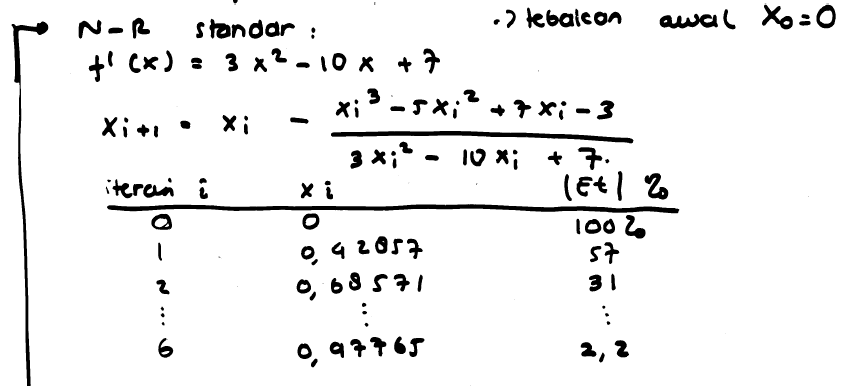 → N-R standar : .) tebakan awal x₀=0
f'(x) = 3x² - 10x + 7
xᵢ₊₁ = xᵢ - (xᵢ³ - 5xᵢ² + 7xᵢ - 3) / (3xᵢ² - 10xᵢ + 7.)
iterasi i xi |Et| %
0 0 100%
1 0,42857 57
2 0,68571 31
⋮ ⋮ ⋮
6 0,97765 2,2